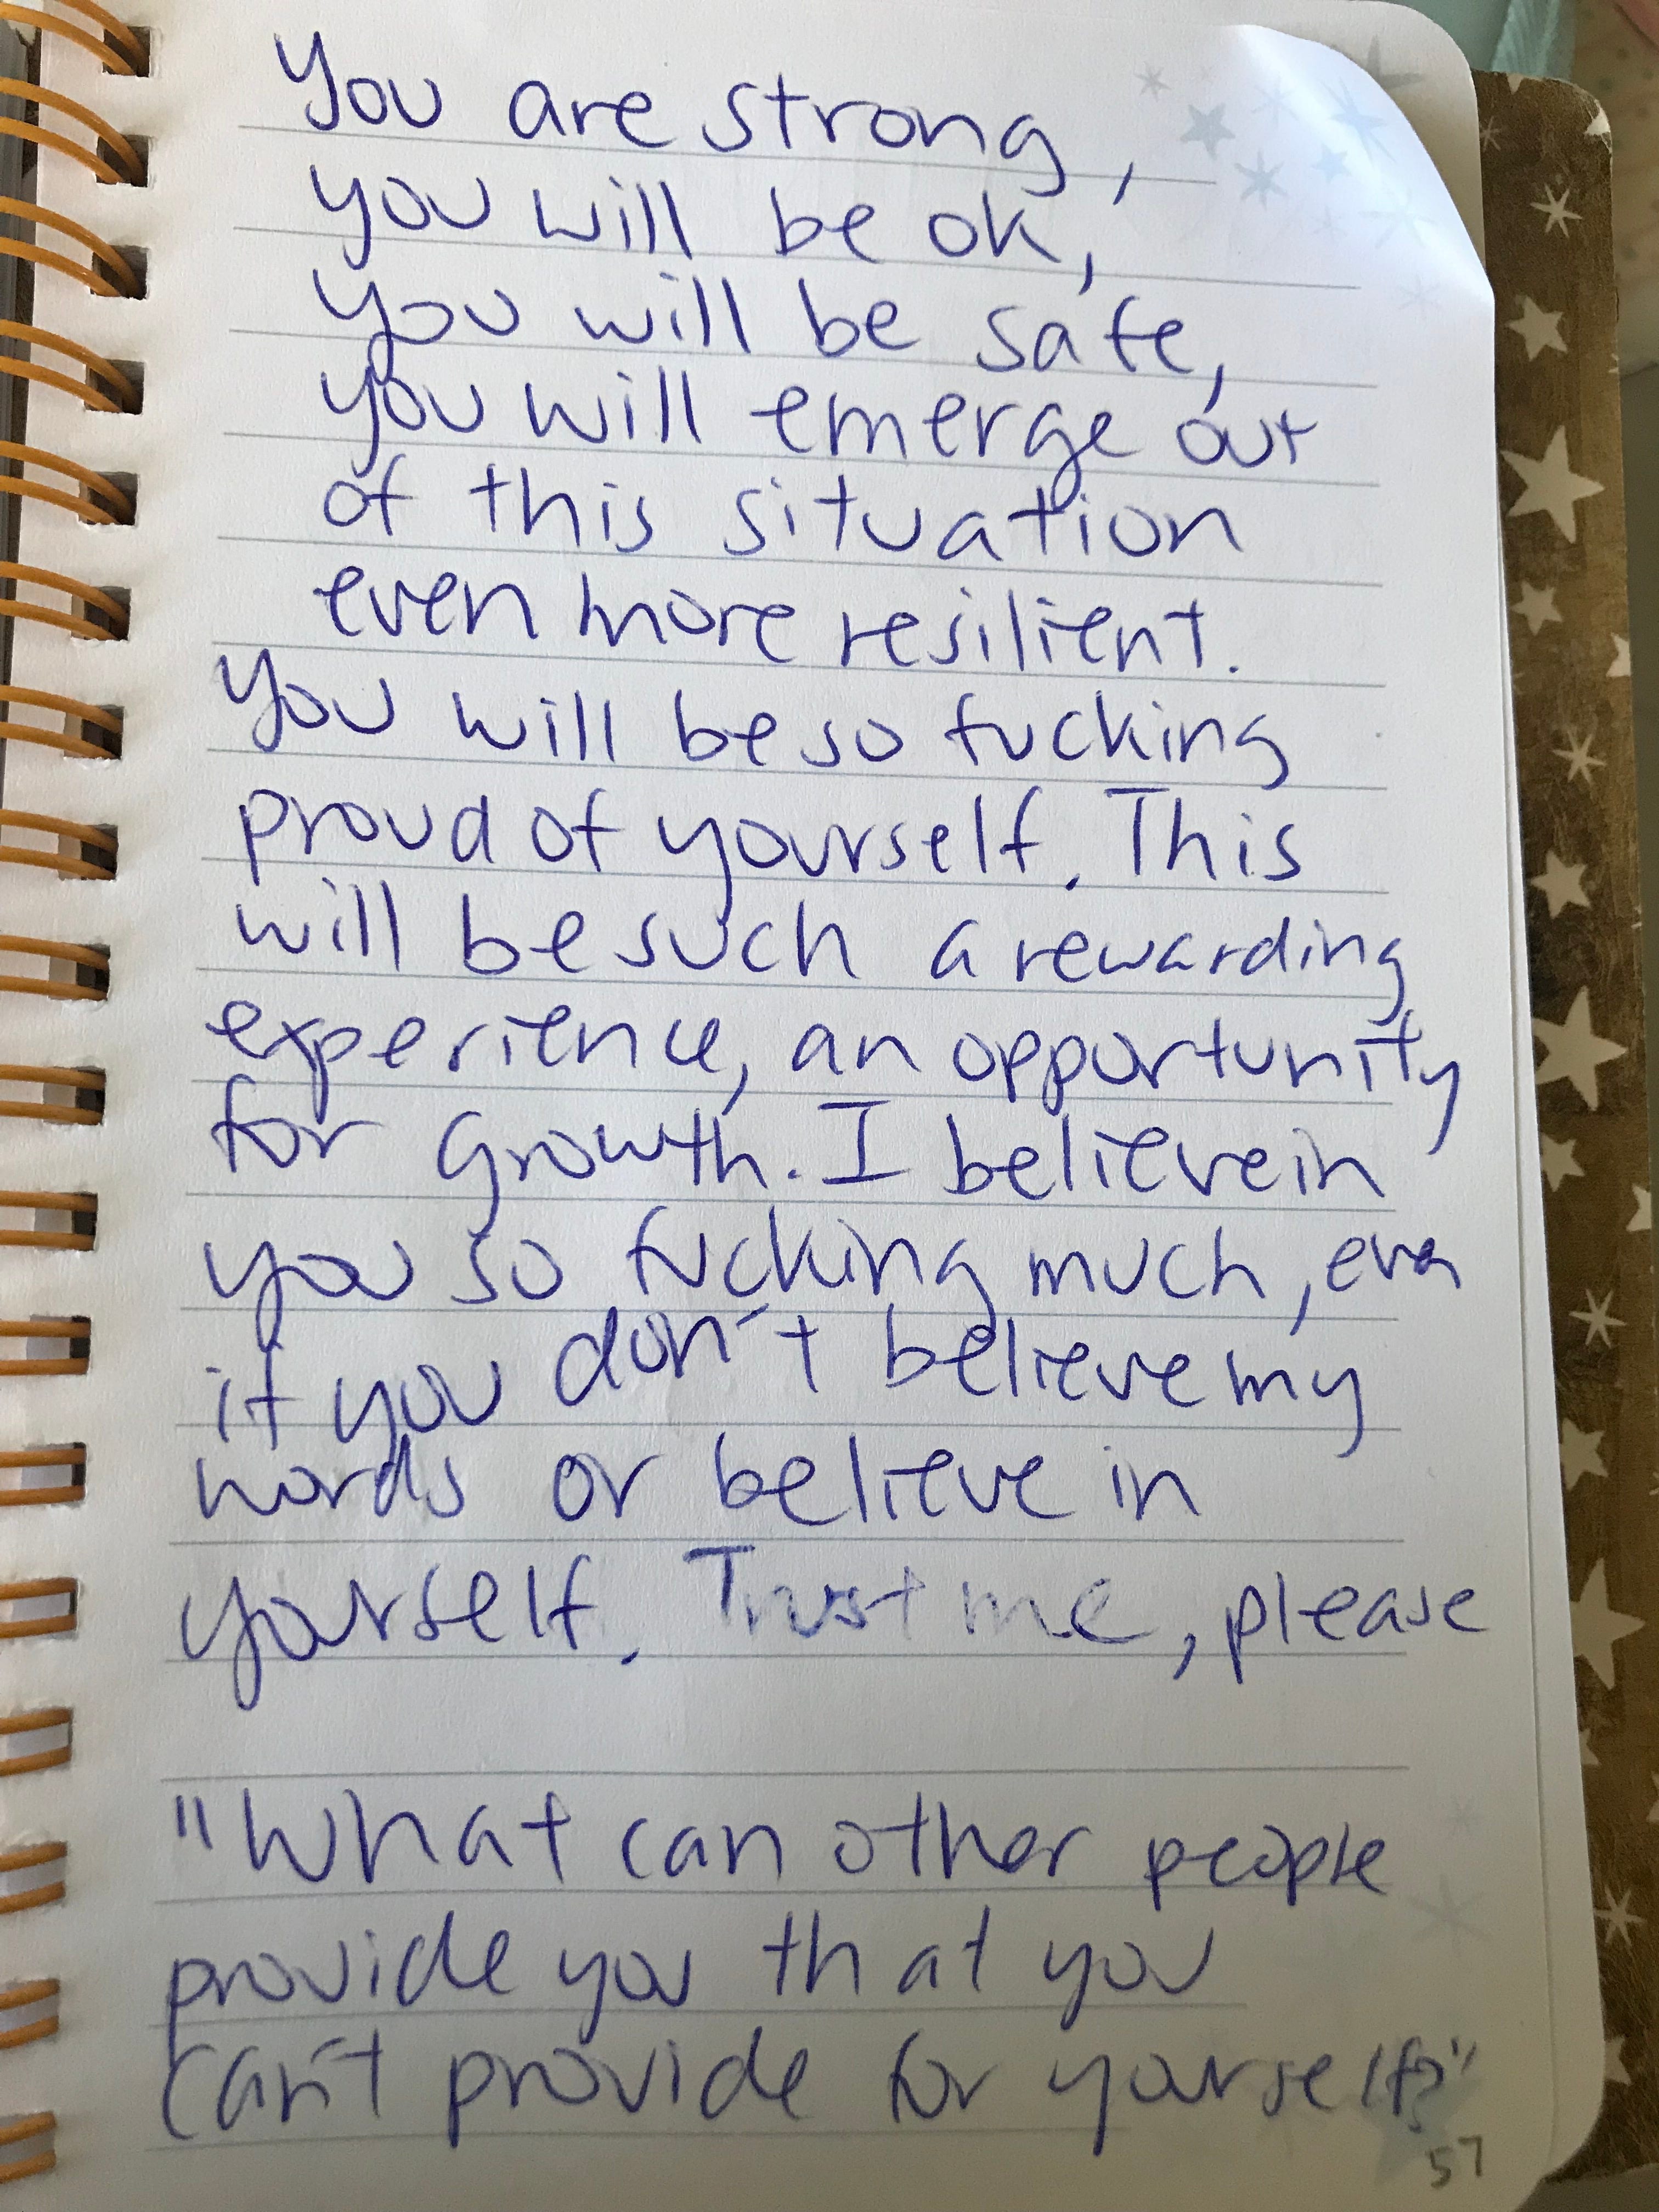 You are strong,
you will be ok,
you will be safe,
you will emerge out
of this situation
even more resilient.
You will be so fucking
proud of yourself. This
will be such a rewarding
experience, an opportunity
for growth. I believe in
you so fucking much, even
if you don't believe my
words or believe in
yourself. Trust me, please
"What can other people
provide you that you
can't provide for yourself?"
57